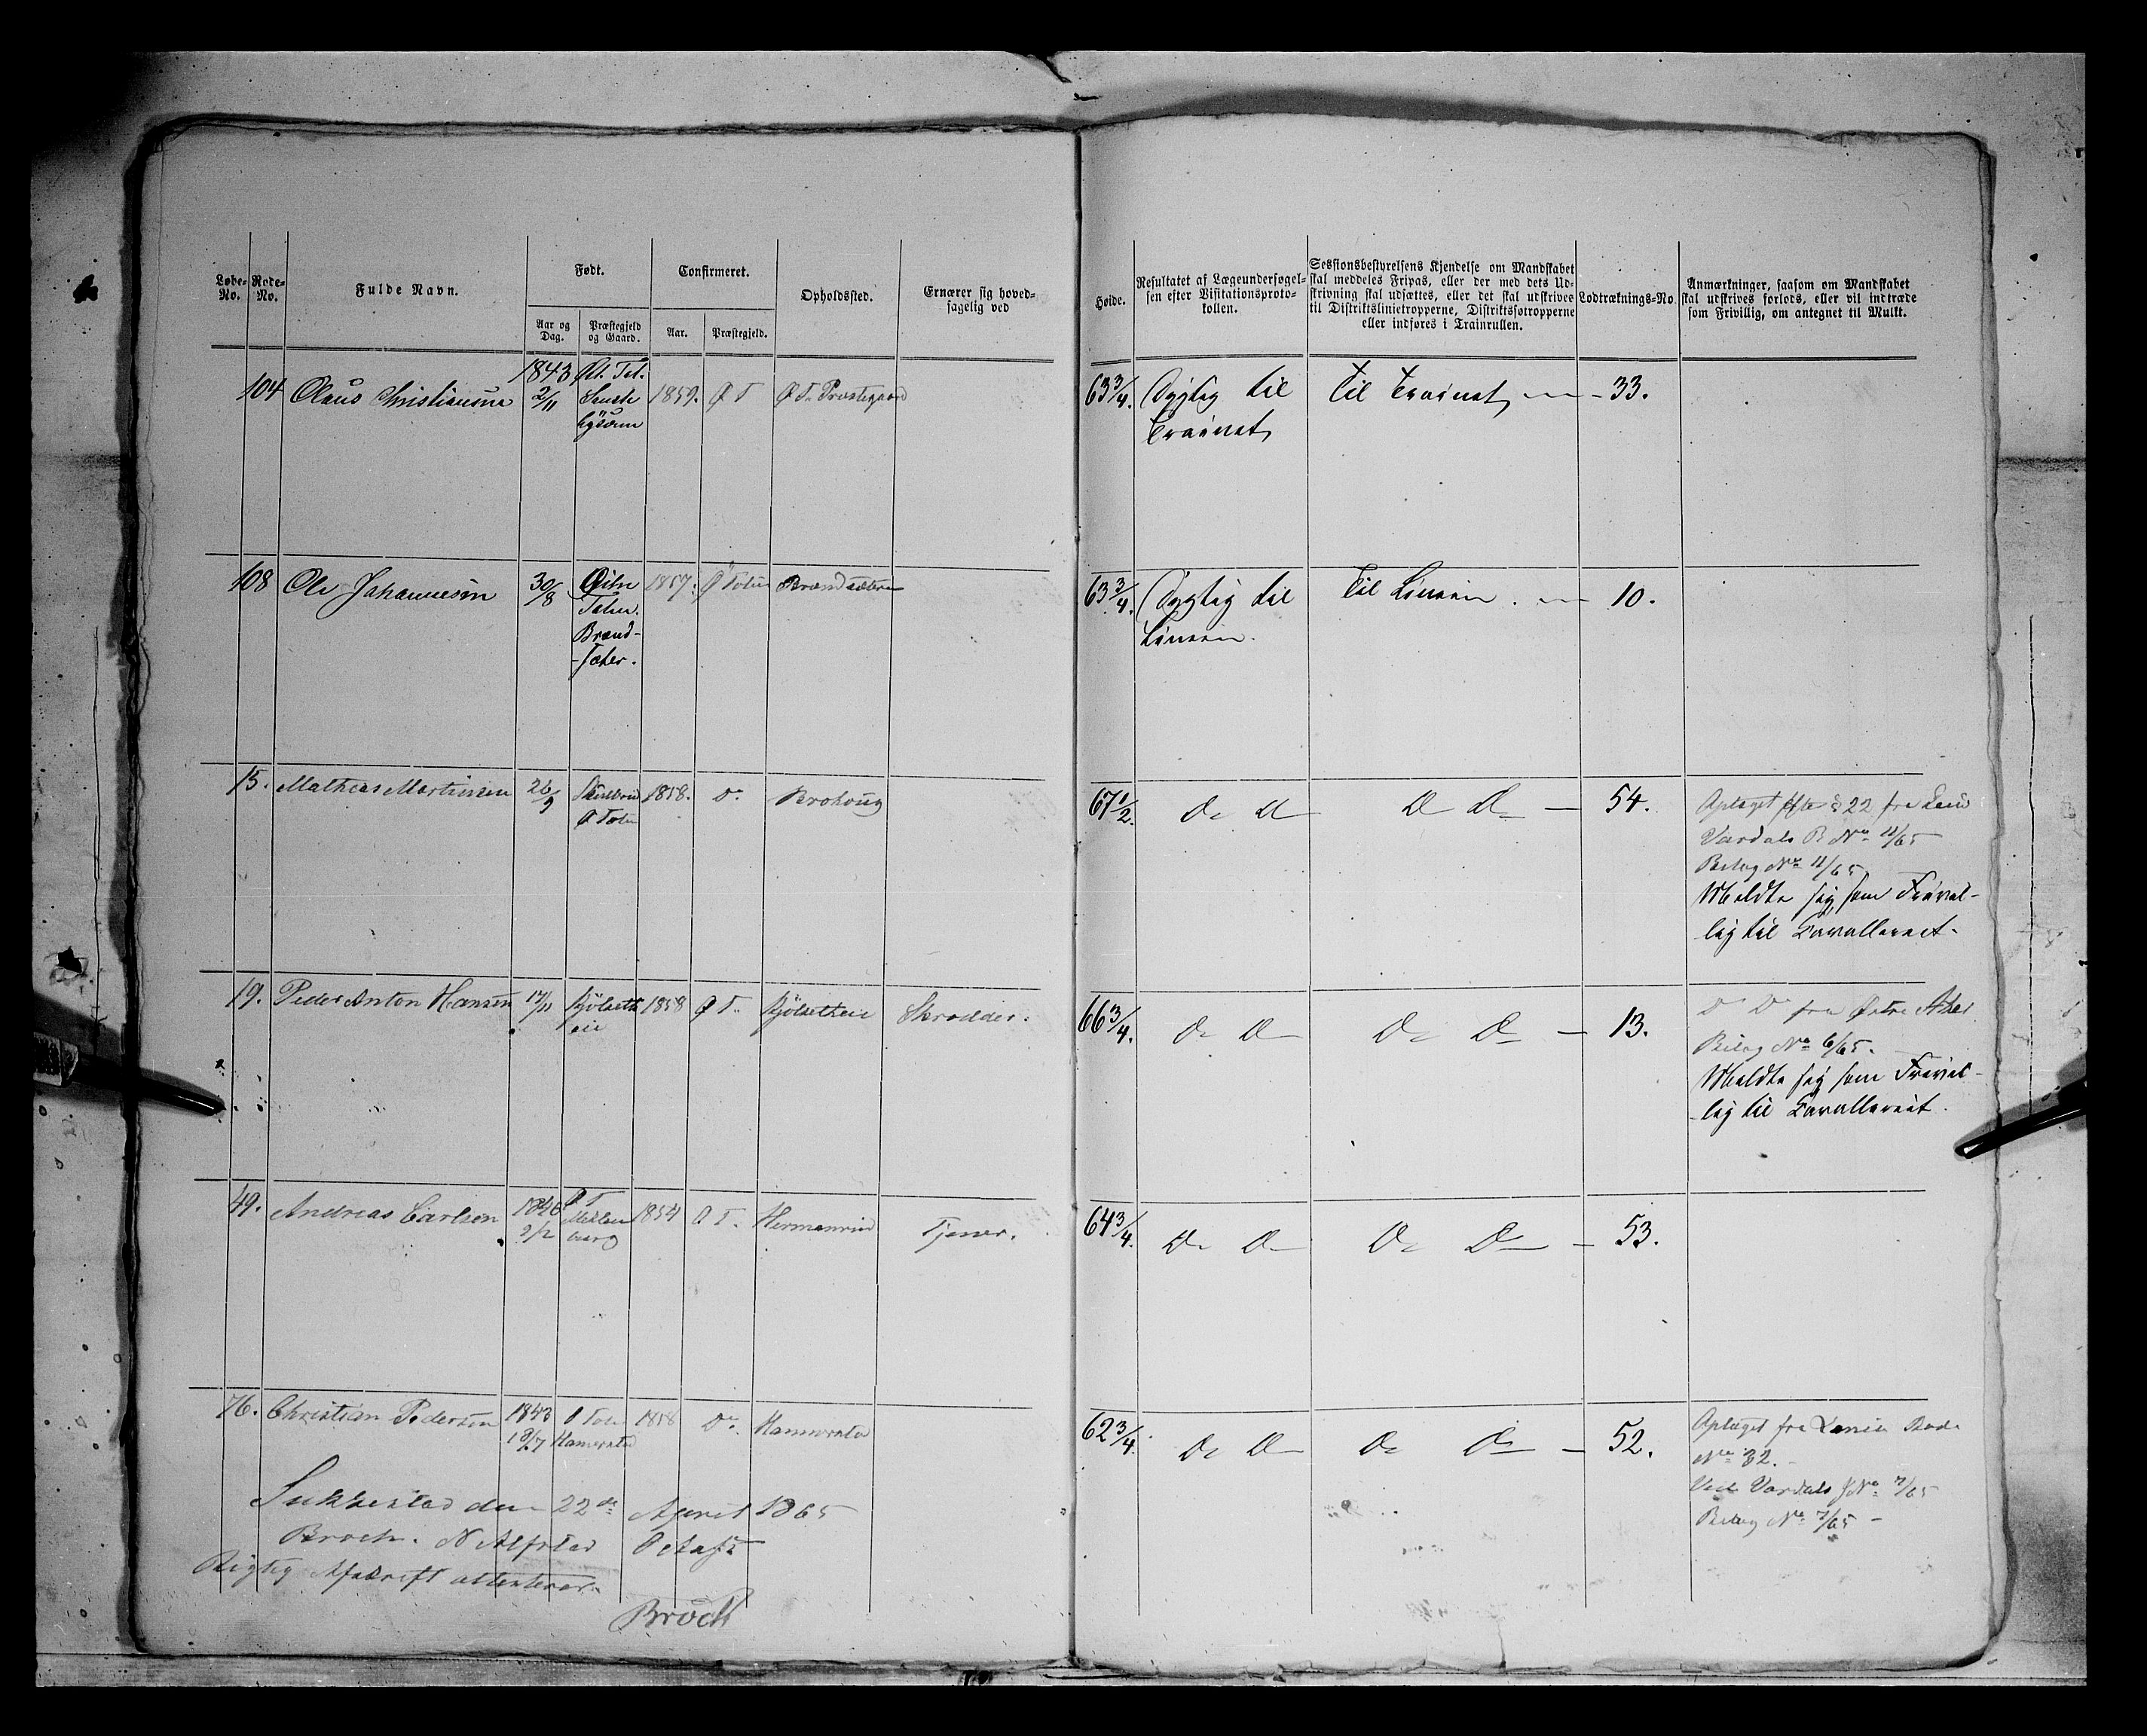 Løbe-No.
Rode-No.
Fulde Navn.
Født.
Aar og Dag.
Præstegjeld og Gaard.
Confirmeret.
Aar.
Præstegjeld.
Opholdssted.
Ernærer sig hoved-
sagelig ved
Høide.
Resultatet af Lægeundersøgel-
sen efter Visitationsproto-
kollen.
Sessionsbestyrelsens Kjendelse om Mandskabet
skal meddeles Fripas, eller der med dets Ud-
skrivning skal udsættes, eller det skal udskrives
til Distriktslinietropperne, Distriktsfotropperne
eller indføres i Trainrullen.
Lodtræknings-No.
Anmærkninger, saasom om Mandskabet
skal udskrives forlods, eller vil indtræde
som Frivillig, om antegnet til Mulkt.
104 Olaus Christiansen 1843 2/11 1859. Ø T Ø T. Præstegaard 63 3/4. Dygtig til Til Trainet, — 33.
Trainet,
108 Ole Johannesen 30/8 Østre 1857. Ø Toten Brændsæteren 63 3/4. Dygtig til Til Linien. — 10.
Toten.
Brænd-
-sæter.
Linien.
15. Mathias Martinsen 26/9 1858. Do. Brohoug 67 1/2. Do Do Do Do — 54.
Ø Toten
Optaget efter § 22 fra
Vardals No 11/65
Bilag No 11/65
Meldte sig som Frivil-
lig til Cavalleriet.
19. Peder Anton Hansen 17/11 Kjölseth 1858 Ø T. Kjölsetheie Skrædder. 66 3/4. Do Do Do Do — 13.
eie
Do Do fra Østre Aker
Bilag No 6/65.
Meldte sig som Frivil-
-lig til Cavalleriet.
49. Andreas Carlsen 1840 2/2 Ø T 1854 Ø T. Hermanrud Tjener. 64 3/4. Do Do Do Do — 53.
76. Christian Pedersen 1843 18/7 Ø Toten 1858 Do. Hammerstad 62 3/4. Do Do Do Do — 52.
Hammerstad
Optaget fra Rode
No 32. -
Vardals No 7/65
Bilag No 7/65 -
Sukkestad den 22de April 1865
Broch. N Alfstad
Rigtig Afskrift attesterer
Broch